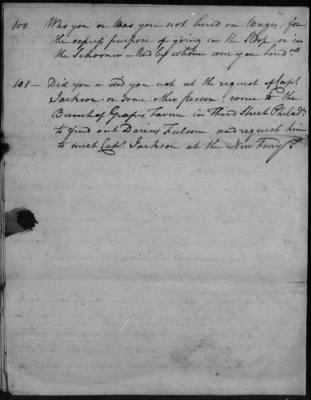 100. Was you or was you not hired on Wages, for
the express purpose of going on the Sloop or in
the Schooner - And by whome were you hired?
101 - Did you or did you not at the request of Capt
Jackson or some other person, come to the
Bunch of Grapes Tavern in Third Street Philad.
to find out Darius Fulsom and request him
to meet Capt. Jackson at the New Ferry?